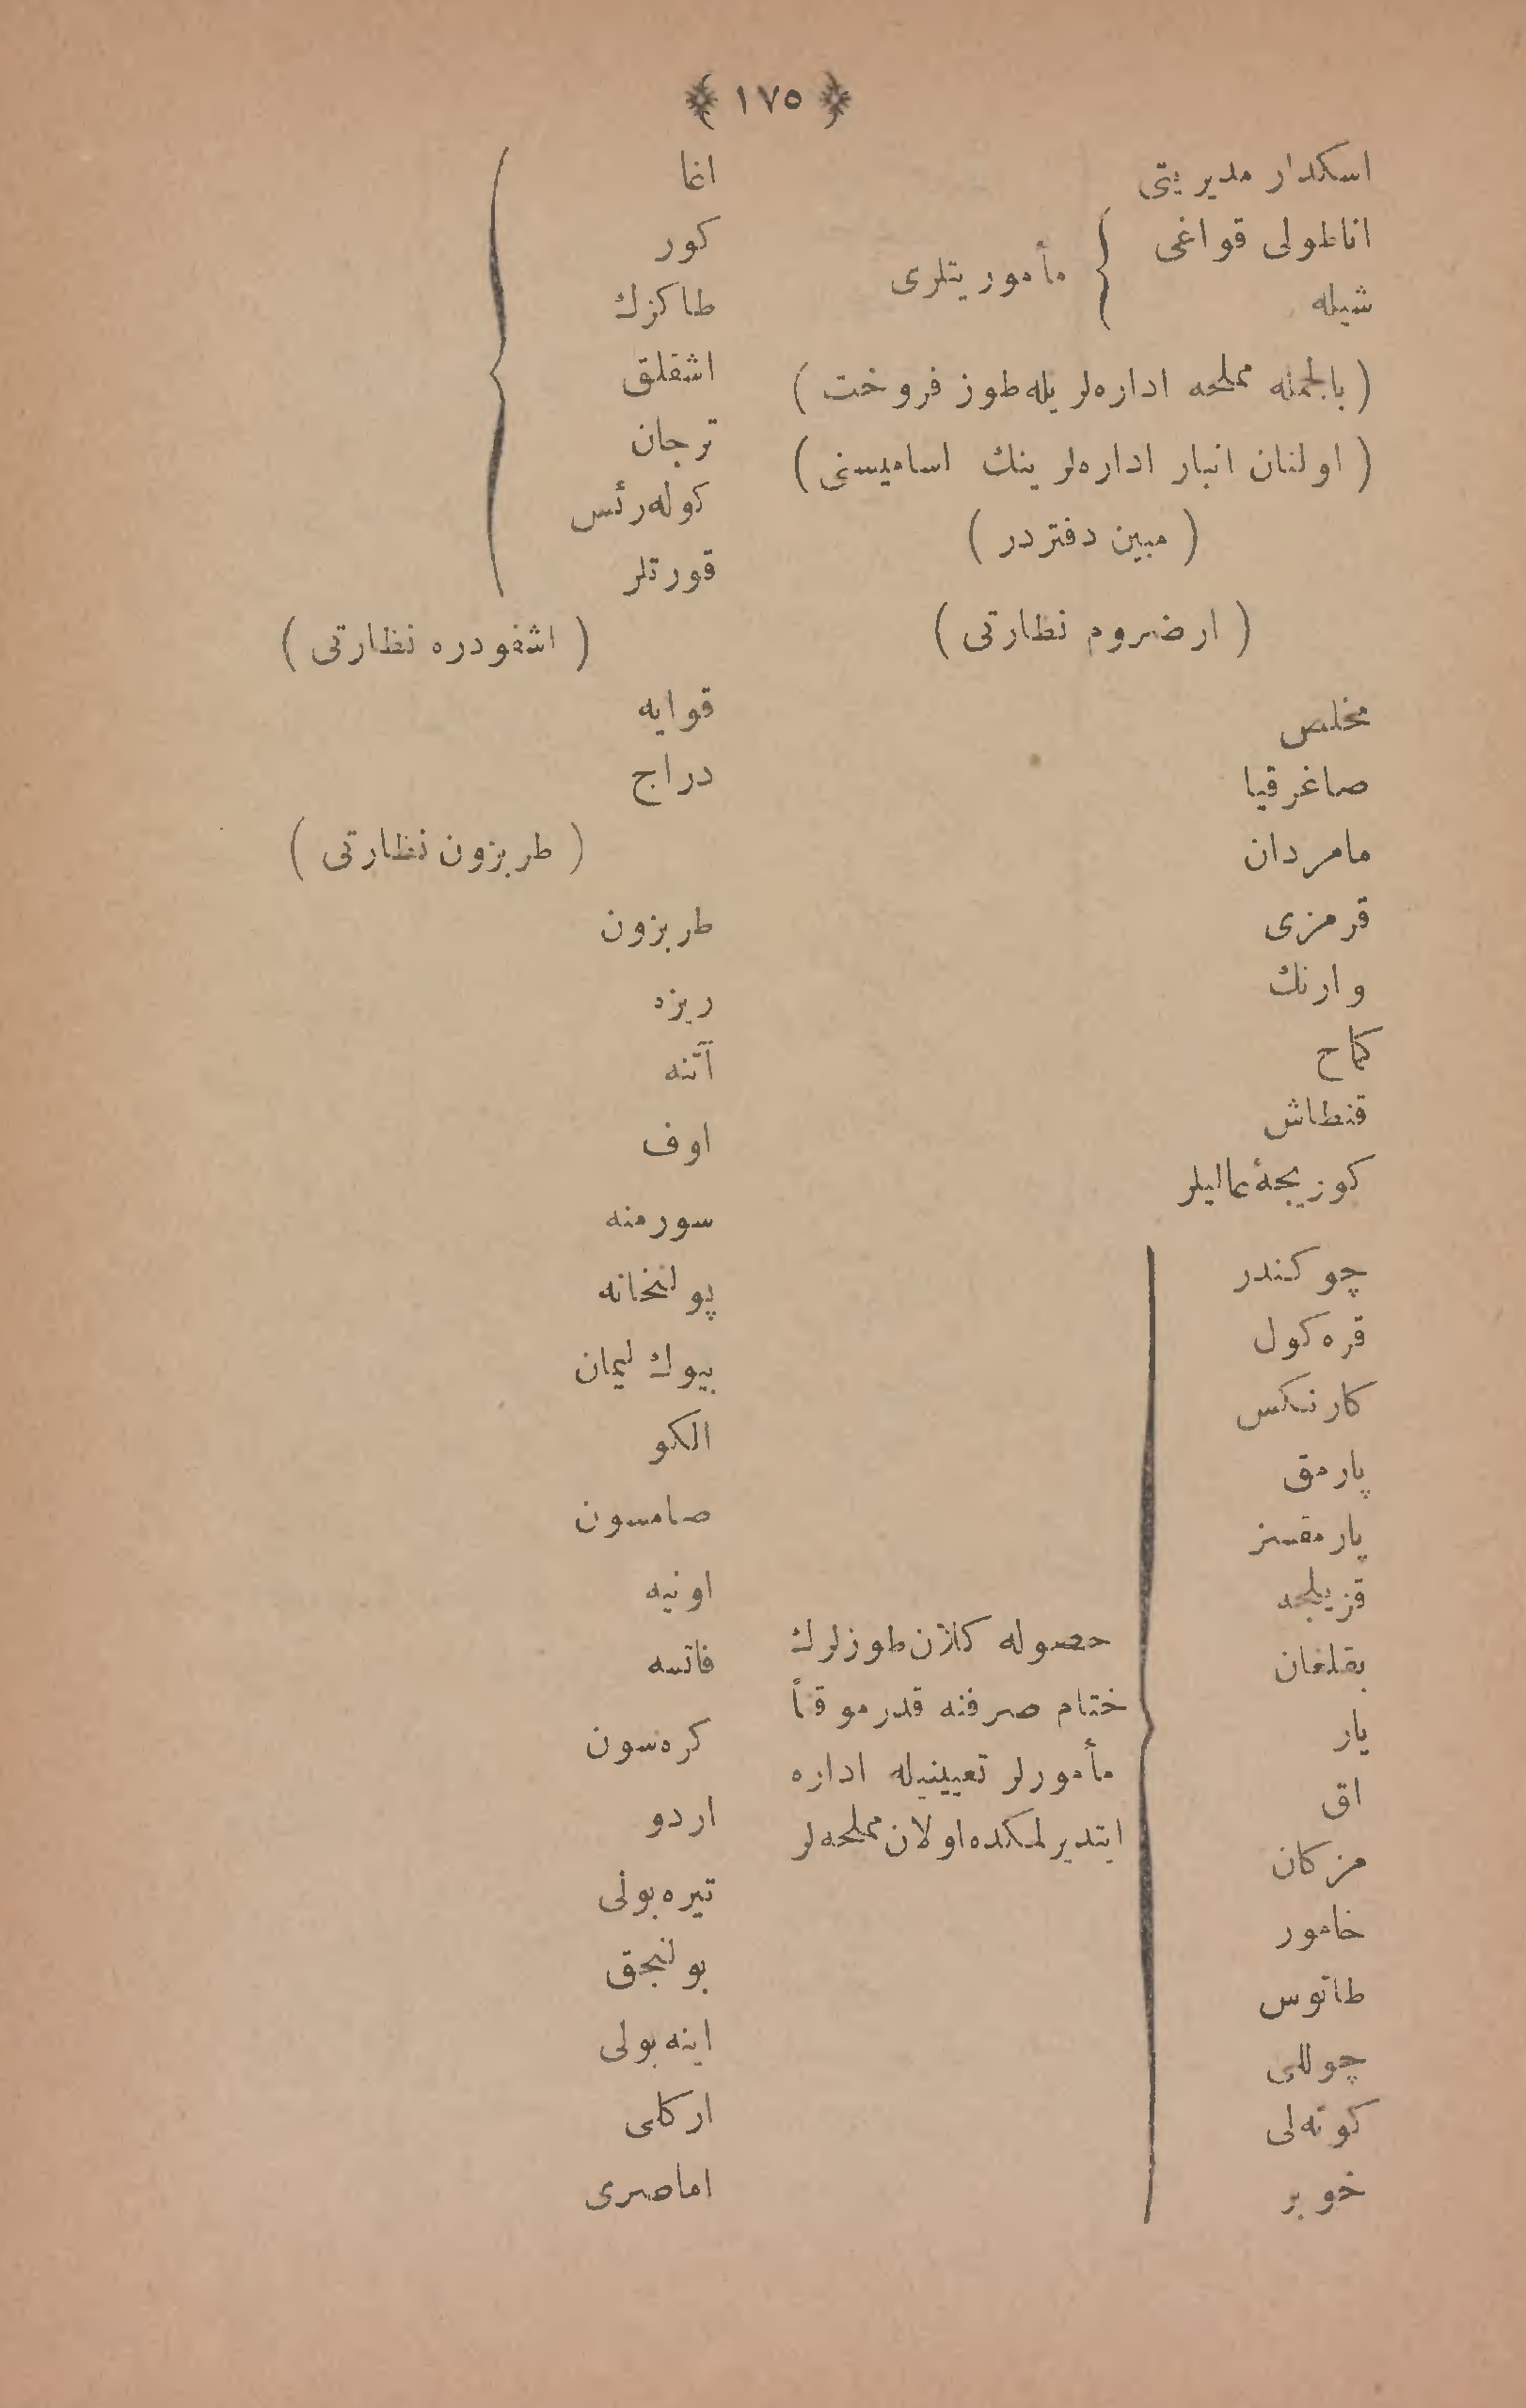 ١٧٥
اسكدار مديريتى
اناطولى قواغى
شيله
مأموريتلرى
( بالجمله مملحه اداره‌لريله طوز فروخت )
( اولنان انبار اداره‌لرينك اساميسنى )
( مبين دفتردر )
( ارضروم نظارتى )
مخلص
صاغرقيا
مامردان
قرمزى
وارنك
كماح
قنطاش
كوزيجهٔ عماليلر
چوكندر
قره كول
كارنكس
پارمق
پارمقسز
قزيلجه
بقلغان
يار
اق
مزكان
خامور
طاتوس
چوللى
كوته‌لى
خوبر
حصوله كلان طوزلرك
ختام صرفنه قدر موقتاً
مأمورلر تعيينيله اداره
ايتديرلمكده اولان مملحه‌لر
اغا
كور
طاكزك
اشقلق
ترجان
كوله‌رئس
قورتلر
( اشقودره نظارتى )
قوايه
دراج
( طربزون نظارتى )
طربزون
ريزه
آتنه
اوف
سورمنه
پولنخانه
بيوك ليمان
الكو
صامسون
اونيه
فاتسه
كره‌سون
اردو
تيره‌بولى
بولنجق
اينه‌بولى
اركلى
اماصرى